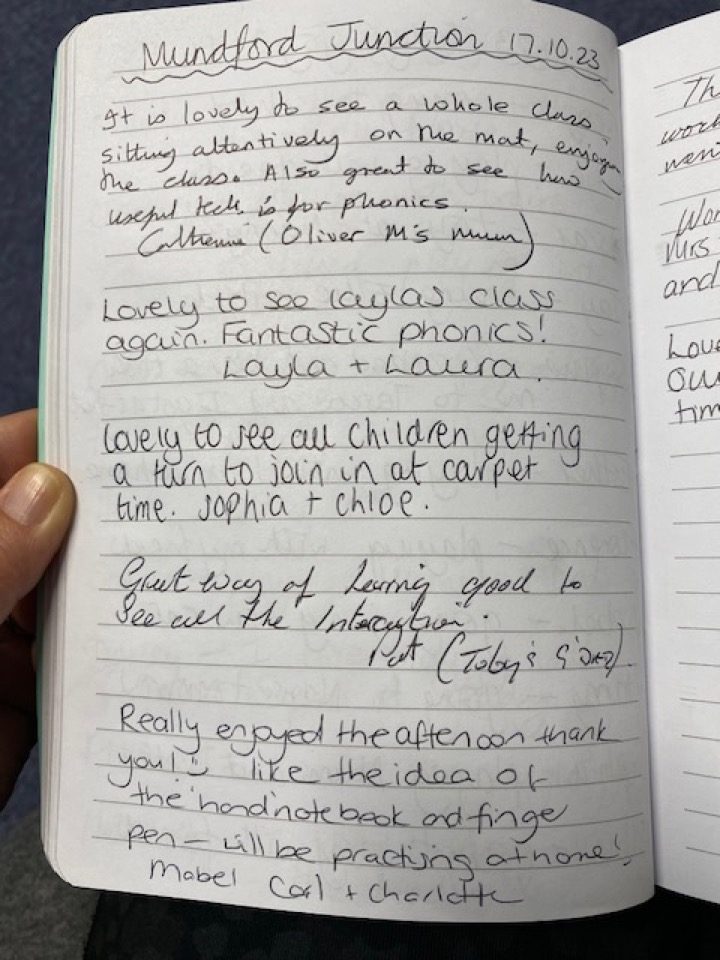 Mundford Junction 17.10.23
It is lovely to see a whole class
sitting attentively on the mat, enjoying
the class. Also great to see how
useful tech is for phonics.
Catherine (Oliver M's mum)
Lovely to see Laylas class
again. Fantastic phonics!
Layla + Laura.
Lovely to see all children getting
a turn to join in at carpet
time. Sophia + Chloe.
Great way of learning good to
see all the Interaction.
Pat (Toby's
Really enjoyed the afternoon thank
you! like the idea of
the 'hand' notebook and finge
pen - will be practising at home!
Mabel Carl + Charlotte
Th
work
went
Wor
Mrs
and
Love
our
tim